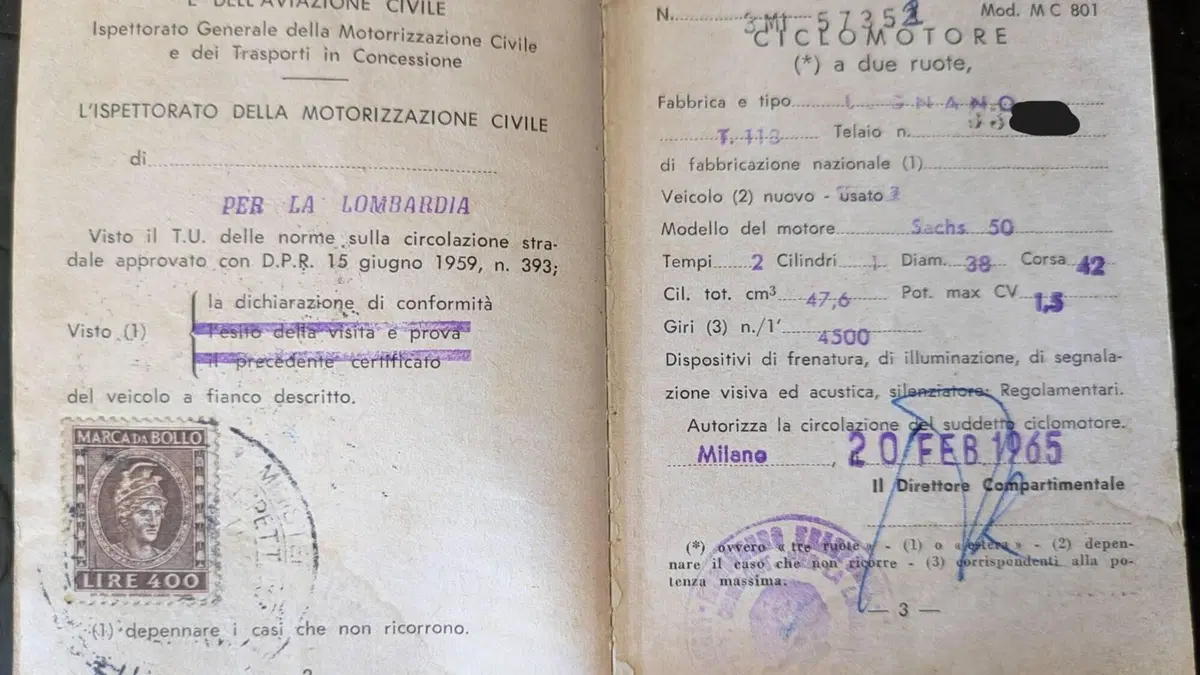 E DELL'AVIAZIONE CIVILE
Ispettorato Generale della Motorrizzazione Civile
e dei Trasporti in Concessione
L'ISPETTORATO DELLA MOTORIZZAZIONE CIVILE
di
PER LA LOMBARDIA
Visto il T.U. delle norme sulla circolazione stra-
dale approvato con D.P.R. 15 giugno 1959, n. 393;
la dichiarazione di conformità
Visto (1) l'esito della visita e prova
il precedente certificato
del veicolo a fianco descritto.
MARCA DA BOLLO
LIRE 400
(1) depennare i casi che non ricorrono.
N. 3MI 57352 Mod. M C 801
CICLOMOTORE
(*) a due ruote,
Fabbrica e tipo LEGNANO
T. 113 Telaio n.
di fabbricazione nazionale (1)
Veicolo (2) nuovo - usato
Modello del motore Sachs 50
Tempi 2 Cilindri 1 Diam. 38 Corsa 42
Cil. tot. cm³ 47,6 Pot. max CV 1,5
Giri (3) n./1' 4500
Dispositivi di frenatura, di illuminazione, di segnala-
zione visiva ed acustica, silenziatore: Regolamentari.
Autorizza la circolazione del suddetto ciclomotore.
Milano, 20 FEB 1965
Il Direttore Compartimentale
(*) ovvero « tre ruote » - (1) o « estera » - (2) depen-
nare il caso che non ricorre - (3) corrispondenti alla po-
tenza massima.
— 3 —